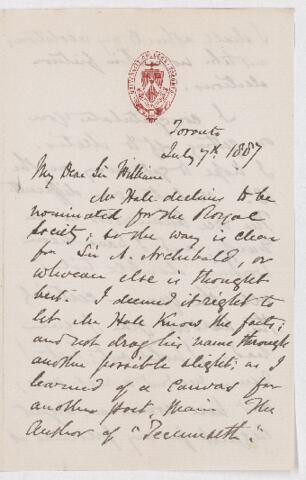 Toronto
July 7th 1887
My Dear Sir William
Mr Hale declines to be
nominated for the Royal
Society; so the way is clear
for Sir A. Archibald, or
whoever else is thought
best. I deemed it right to
let Mr Hale know the facts;
and not drag his name through
another possible slight; as I
learned of a canvas for
another poet, Mair "The
Author of "Tecumseth".